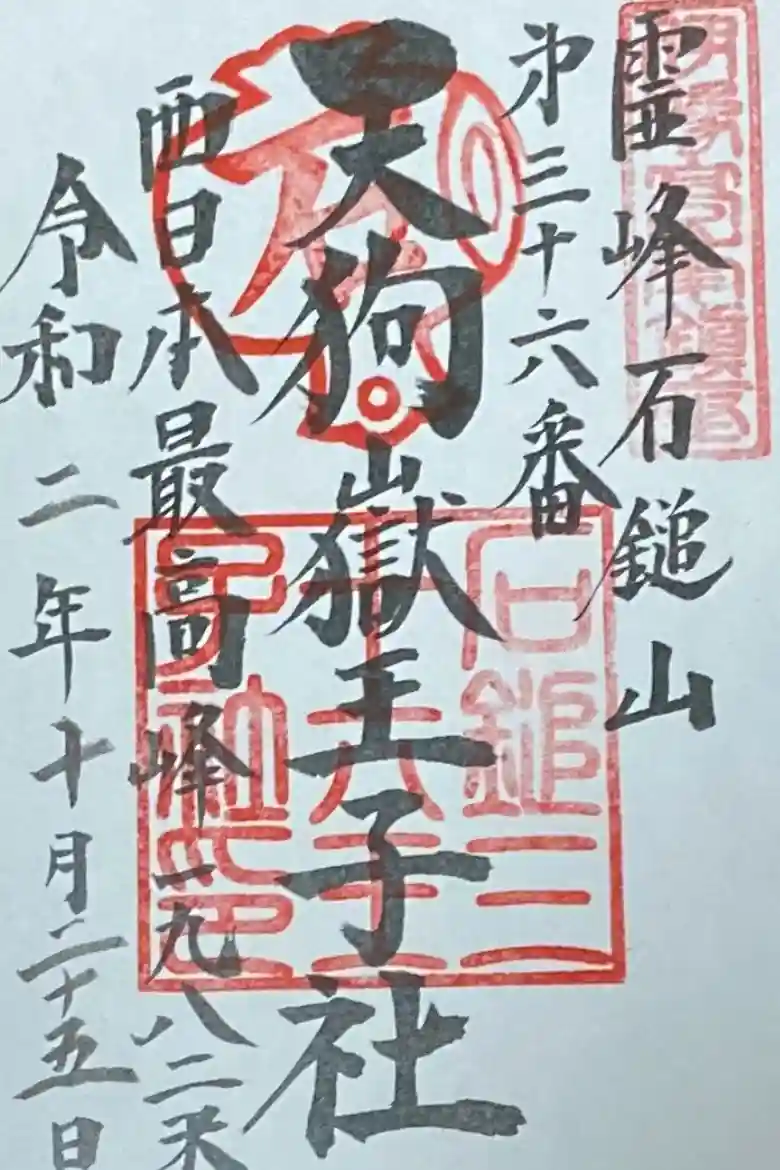 霊峰石鎚山
第三十六番
天狗山嶽王子社
西日本最高峰一九八二米
令和二年十月二十五日
石鎚三
十六王
子社之印